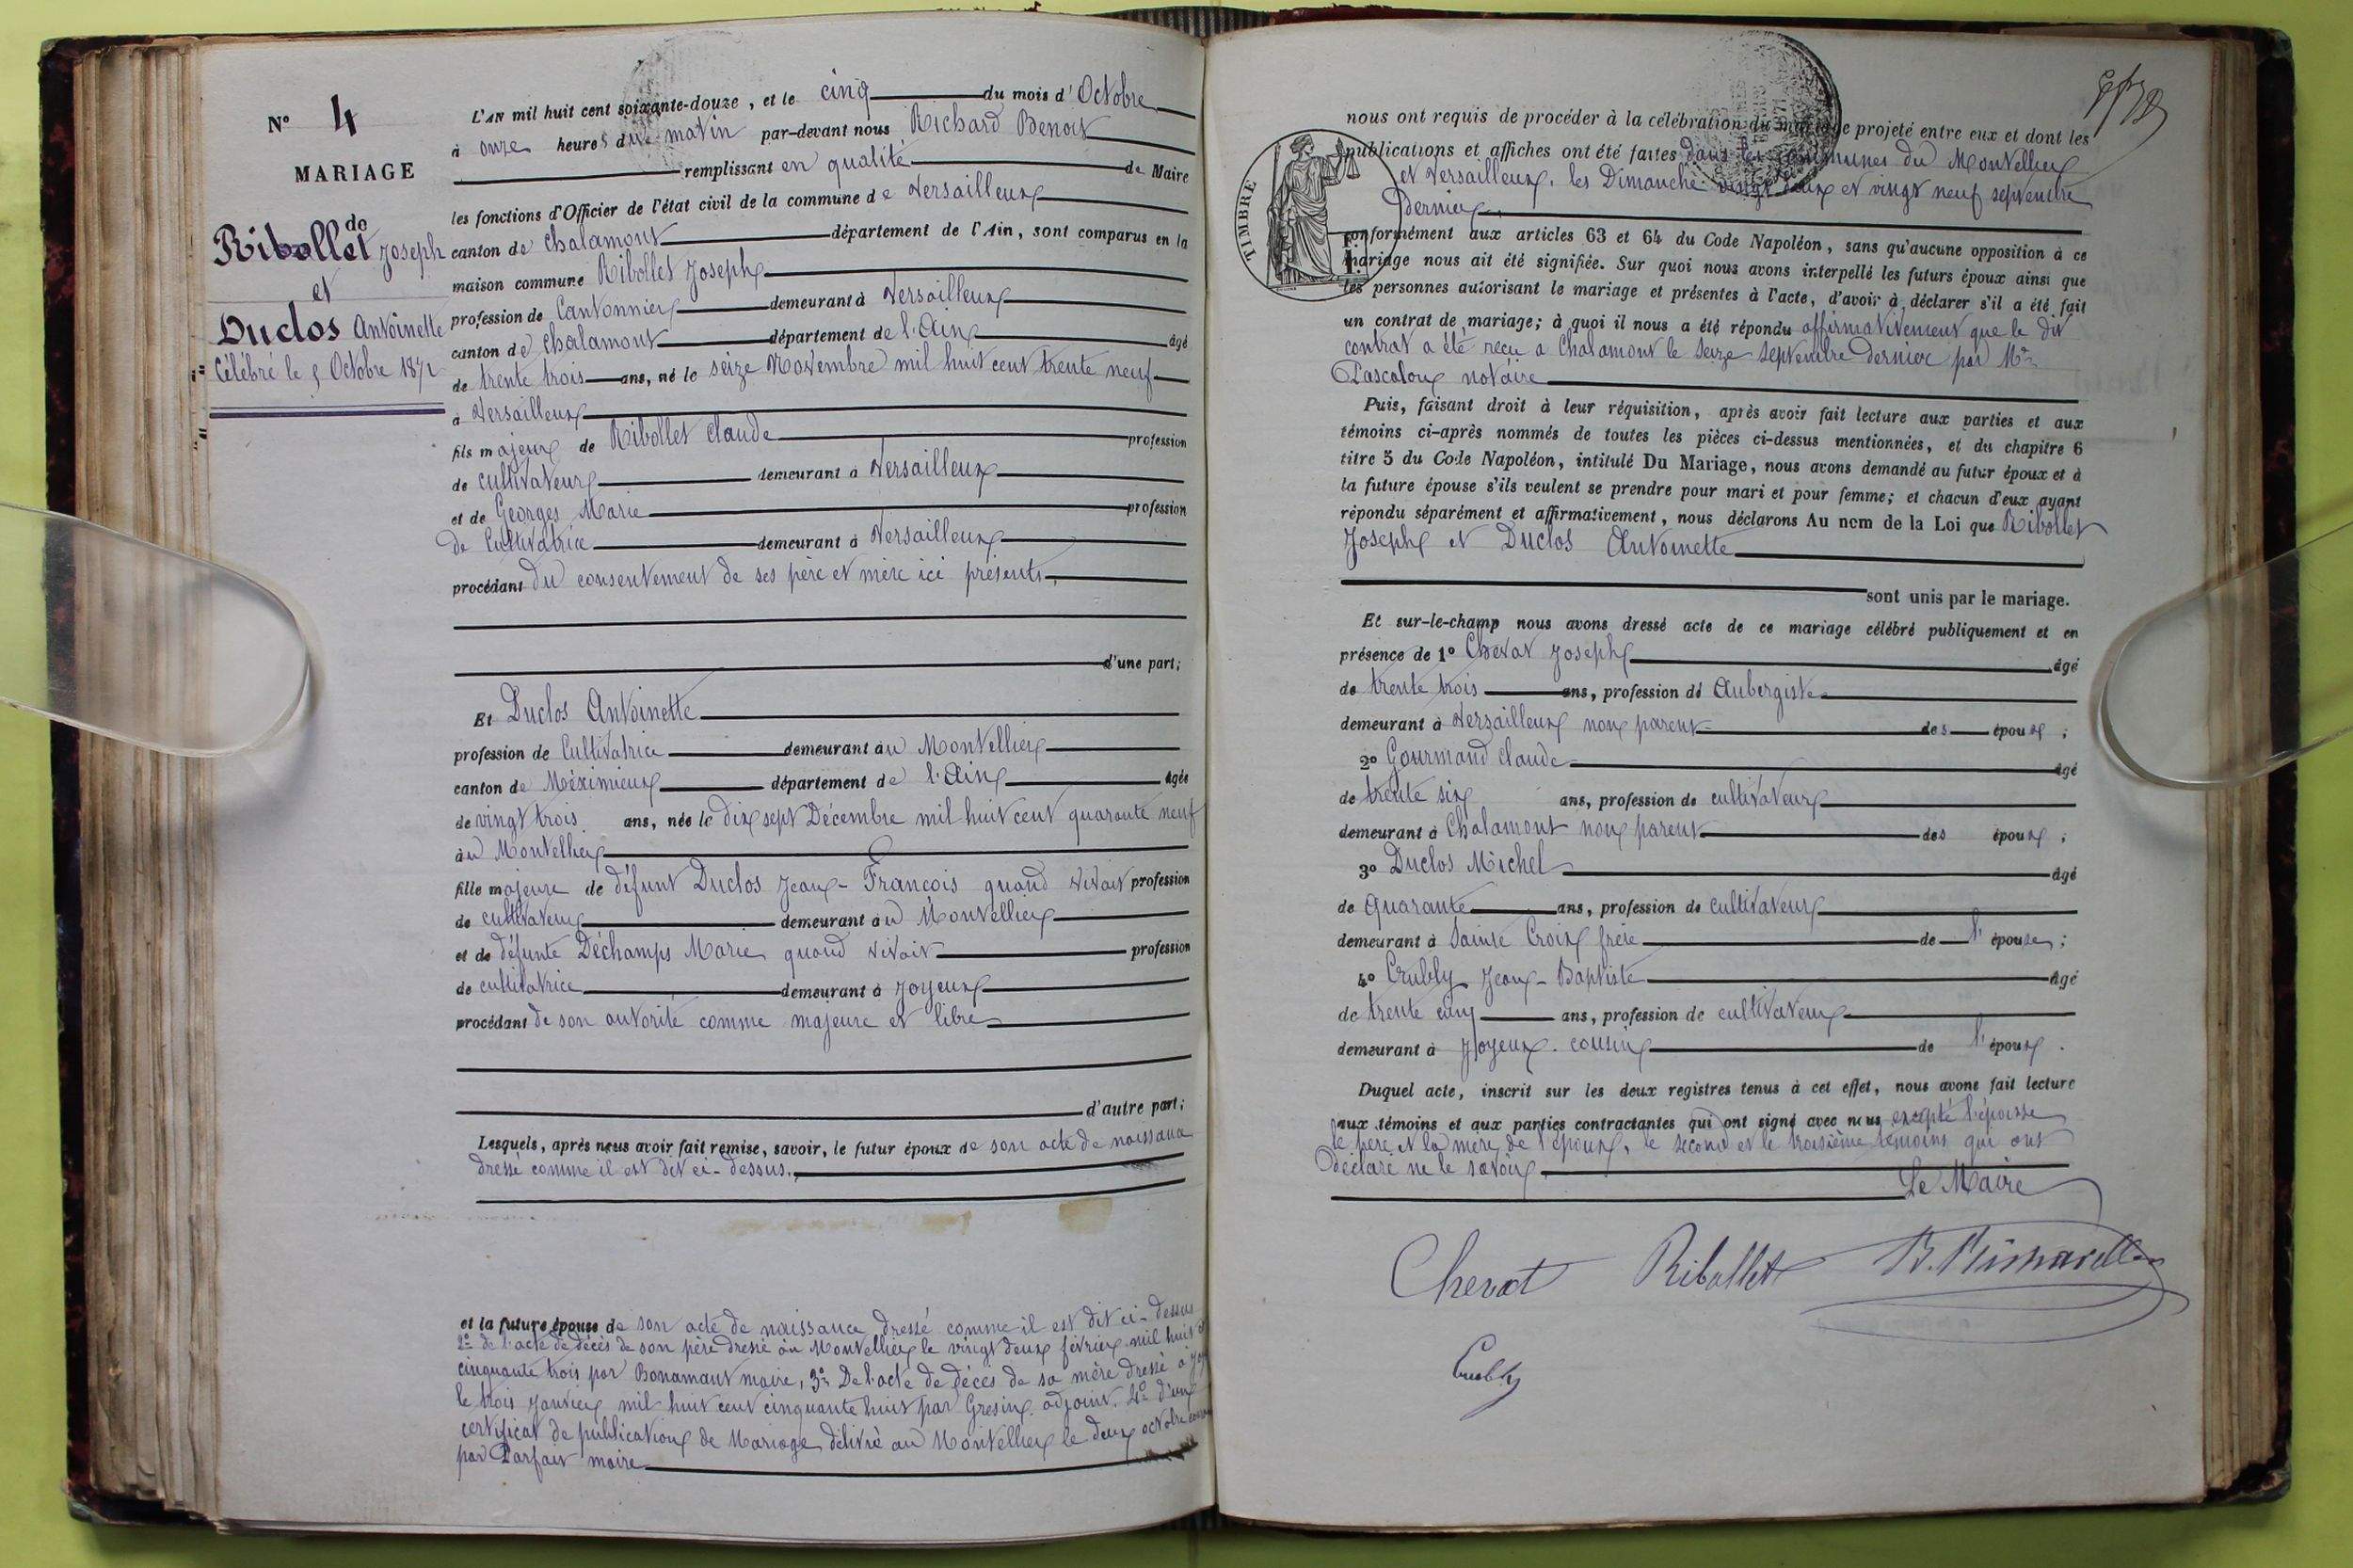 N° 4
MARIAGE
de
Ribollet Joseph
et
Duclos Antoinette
Célébré le 5 Octobre 1872
L'AN mil huit cent soixante-douze, et le cinq du mois d'Octobre
à onze heures du matin par-devant nous Richard Benoit
remplissant en qualité de Maire
les fonctions d'Officier de l'état civil de la commune de Versailleux
canton de Chalamont département de l'Ain, sont comparus en la
maison commune Ribollet Joseph
profession de Cantonnier demeurant à Versailleux
canton de Chalamont département de l'Ain âgé
de trente trois ans, né le seize Novembre mil huit cent trente neuf
à Versailleux
fils majeur de Ribollet Claude profession
de cultivateur demeurant à Versailleux
et de Georges Marie profession
de Cultivatrice demeurant à Versailleux
procédant du consentement de ses père et mère ici présents,
d'une part;
Et Duclos Antoinette
profession de Cultivatrice demeurant àu Montellier
canton de Méximieux département de l'Ain âgée
de vingt trois ans, née le dix sept Décembre mil huit cent quarante neuf
àu Montellier
fille majeure de défunt Duclos Jean-François quand vivait profession
de cultivateur demeurant àu Montellier
et de défunte Déchamps Marie quand vivait profession
de cultivatrice demeurant à Joyeux
procédant de son autorité comme majeure et libre
d'autre part;
Lesquels, après nous avoir fait remise, savoir, le futur époux de son acte de naissance
dressé comme il est dit ci-dessus.
et la future épouse de son acte de naissance dressé comme il est dit ci-dessus
2° de l'acte de décès de son père dressé au Montellier le vingt deux février mil huit
cinquante trois par Bonamant maire, 3° De l'acte de décès de sa mère dressé à
le trois Janvier mil huit cent cinquante huit par Gresin adjoint. 4° d'un
certificat de publication de Mariage délivré au Montellier le deux octobre
par Parfait maire
nous ont requis de procéder à la célébration du mariage projeté entre eux et dont les
publications et affiches ont été faites dans les communes du Montellier
et Versailleux, les Dimanche vingt deux et vingt neuf septembre
Dernier,
TIMBRE
conformément aux articles 63 et 64 du Code Napoléon, sans qu'aucune opposition à ce
mariage nous ait été signifiée. Sur quoi nous avons interpellé les futurs époux ainsi que
les personnes autorisant le mariage et présentes à l'acte, d'avoir à déclarer s'il a été fait
un contrat de mariage; à quoi il nous a été répondu affirmativement que le dit
contrat a été reçu a Chalamont le seize septembre dernier par Me
Pascalon notaire
Puis, faisant droit à leur réquisition, après avoir fait lecture aux parties et aux
témoins ci-après nommés de toutes les pièces ci-dessus mentionnées, et du chapitre 6
titre 5 du Code Napoléon, intitulé Du Mariage, nous avons demandé au futur époux et à
la future épouse s'ils veulent se prendre pour mari et pour femme; et chacun d'eux ayant
répondu séparément et affirmativement, nous déclarons Au nom de la Loi que Ribollet
Joseph et Duclos Antoinette
sont unis par le mariage.
Et sur-le-champ nous avons dressé acte de ce mariage célébré publiquement et en
présence de 1° Chevat Joseph âgé
de trente trois ans, profession de Aubergiste
demeurant à Versailleux non parent des époux;
2° Gourmand Claude âgé
de trente six ans, profession de cultivateur
demeurant à Chalamont non parent des époux;
3° Duclos Michel âgé
de Quarante ans, profession de cultivateur
demeurant à Sainte Croix frère de l'épouse;
4° Crubly Jean-Baptiste âgé
de trente cinq ans, profession de cultivateur
demeurant à Joyeux. cousin de l'époux.
Duquel acte, inscrit sur les deux registres tenus à cet effet, nous avons fait lecture
aux témoins et aux parties contractantes qui ont signé avec nous excepté l'épouse
le père et la mère de l'époux, le second et le troisième témoins qui ont
Déclaré ne le savoir.
Le Maire
Chevat Ribollet
Crubly